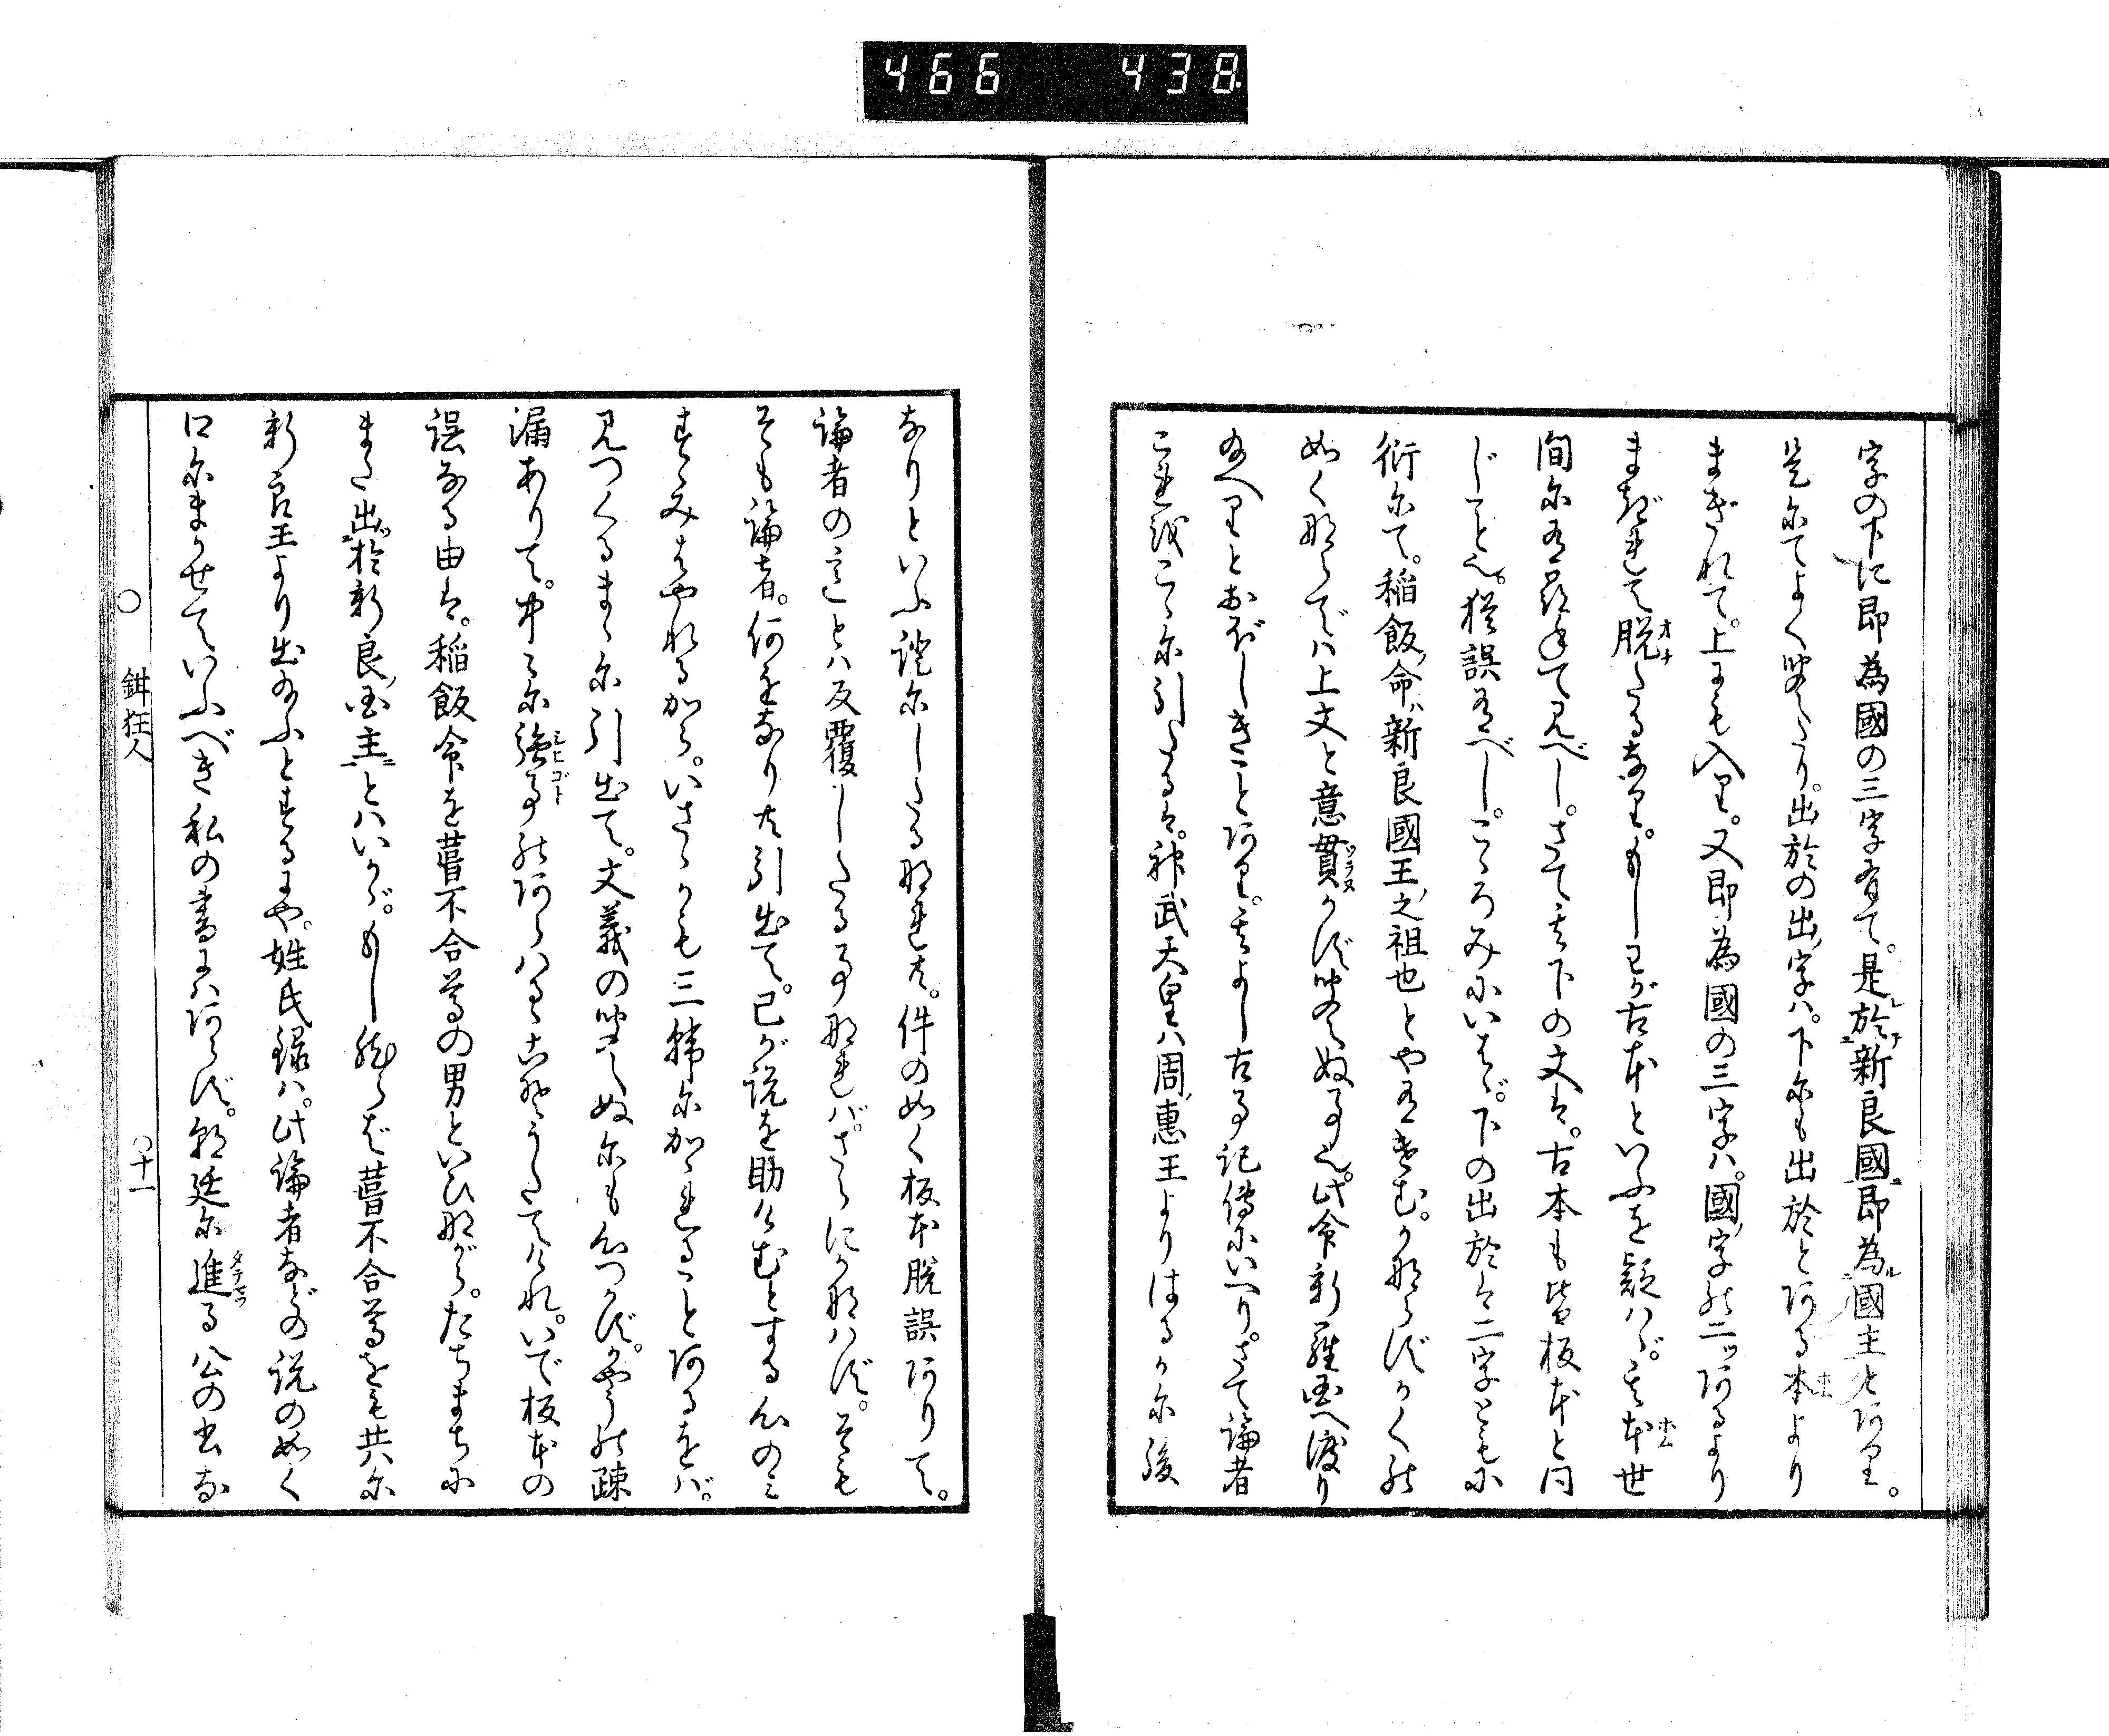 466 438
字の下に即為國の三字有て。是於新良國即為國主とあり。
是にてよく聞えたり。出於の出ノ字ハ。下にも出於とある本より
まぎれて。上にも入り。又即為國の三字ハ。國ノ字の二ツあるより
まぎれて脱たるなり。もしわが古本といふを疑ハヾ。其本世
間に有を尋て見べし。さて其下の文は。古本も皆板本と同
じこと也。猶誤有べし。こゝろみにいはゞ。下の出於は二字ともに
衍にて。稲飯ノ命ハ新良國王之祖也とや有けむ。かならずかくの
如くならでハ上文と意貫かず聞えぬ事也。此命新羅国へ渡り
給へりとおぼしきことあり。其よし古事記傳にいへり。さて論者
これをこゝに引たるは。神武天皇ハ周ノ惠王よりはるかに後
なりといふ證にしたるなれど。件の如く板本脱誤ありて。
論者の意とハ反覆したる事なれバ。さらにかなハず。そも
そも論者。何をなりと引出て。己が説を助けむとする心のミ
すゝみはやれるから。いさゝかも三韓にかゝれることあるをバ。
見つくるまゝに引出て。文義の聞えぬにも心つかず。かやうの疎
漏ありて。中々に強事のあらハるゝこそうたてけれ。いで板本の
誤なる由は。稲飯命を葺不合尊の男といひながら。たちまちに
また出於新良ノ国主とハいかゞ。もし然らば葺不合尊をも共に
新良王より出給ふとするにや。姓氏録ハ。此論者などの説の如く
口にまかせていふべき私の書にハあらず。朝廷に進る公の書な
○ 鉗狂人 ○十一